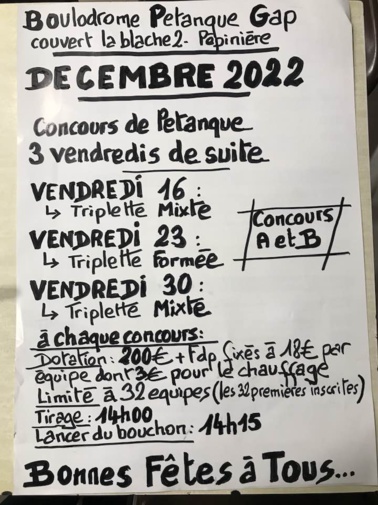 Boulodrome Petanque Gap
couvert la blache 2 - Pépinière
DECEMBRE 2022
Concours de Petanque
3 vendredis de suite
VENDREDI 16 :
↳ Triplette Mixte
VENDREDI 23 :
↳ Triplette Formée
VENDREDI 30 :
↳ Triplette Mixte
Concours
A et B
à chaque concours:
Dotation: 200€ + Fdp fixés à 18€ par
équipe dont 3€ pour le chauffage
Limité à 32 equipes (les 32 premières inscrites)
Tirage : 14h00
Lancer du bouchon : 14h15
Bonnes Fêtes à Tous...